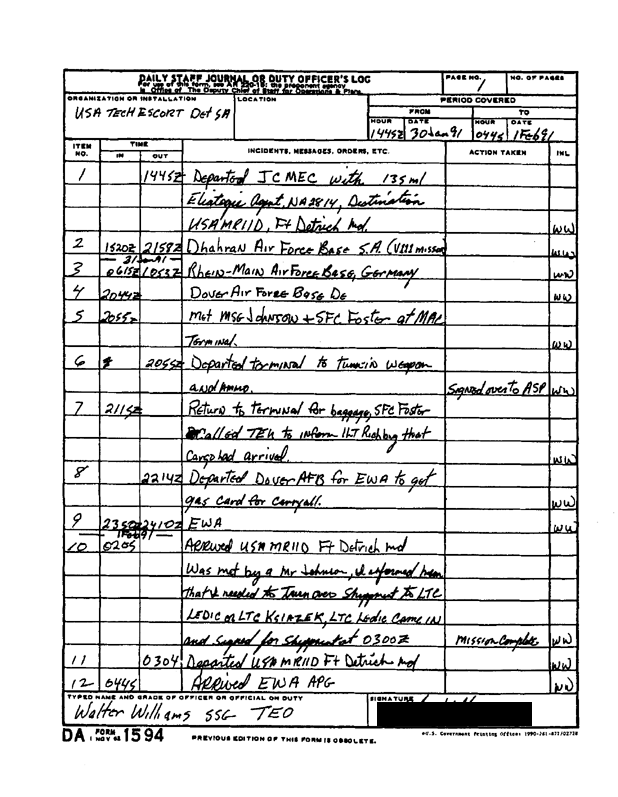 DAILY STAFF JOURNAL OR DUTY OFFICER'S LOG
For use of this form, see AR 220-15; the proponent agency
is Office of The Deputy Chief of Staff for Operations & Plans.
PAGE NO.
1
NO. OF PAGES
ORGANIZATION OR INSTALLATION
USA TECH ESCORT Det SA
LOCATION
PERIOD COVERED
FROM TO
HOUR DATE HOUR DATE
1445Z 30Jan91 0445 1Feb91
ITEM NO. TIME INCIDENTS, MESSAGES, ORDERS, ETC. ACTION TAKEN INL
IN OUT
1 1445Z Departed JCMEC with 135ml
Agent, NA2814, Destination
USAMRIID, Ft Detrich Md. WW
2 1520Z 2158Z Dhahran Air Force Base S.A. (VIII mission WW
31Jan91
3 0615Z 1053Z Rhein-Main Air Force Base, Germany WW
4 2044Z Dover Air Force Base De WW
5 2055z Met MSG Johnson + SFC Foster at MAC
Terminal. WW
6 2055Z Departed terminal to turnin weapon
and Ammo. Signed over to ASP WW
7 2115Z Return to terminal for baggage, SFC Foster
Called TEU to inform 1LT Richbug that
Cargo had arrived. WW
8 2214Z Departed Dover AFB for EWA to get
gas card for carryall. WW
9 2350Z 2410Z EWA WW
1Feb91
10 0205 Arrived USAMRIID Ft Detrich md
Was met by a Mr Johnson, I informed him
that I needed to Turn over Shippment to LTC
LEDIC or LTC KSIAZEK, LTC Ledic Came in
and Signed for Shippment at 0300Z Mission Complete WW
11 0304 Departed USAMRIID Ft Detrich md WW
12 0445 ARRived EWA APG WW
TYPED NAME AND GRADE OF OFFICER OR OFFICIAL ON DUTY
Walter Williams SSG TEO
SIGNATURE
DA FORM 1 NOV 62 1594
PREVIOUS EDITION OF THIS FORM IS OBSOLETE.
U.S. Government Printing Office: 1990-261-871/02738